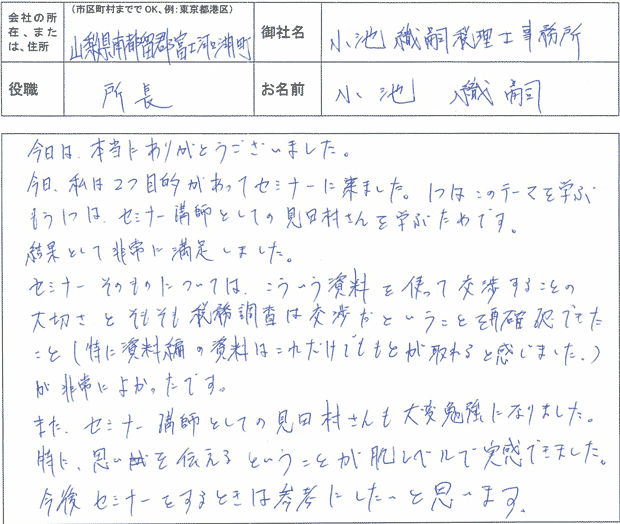 会社の所在、または、住所
(市区町村までで OK、例:東京都港区)
山梨県南都留郡富士河口湖町
御社名
小池 織嗣税理士事務所
役職
所長
お名前
小池 織嗣
今日は、本当にありがとうございました。
今日、私は2つ目的があってセミナーに来ました。1つはこのテーマを学ぶ
もう1つは、セミナー講師としての見田村さんを学ぶためです。
結果として非常に満足しました。
セミナーそのものについては、こういう資料を使って交渉することの
大切さとそもそも税務調査は交渉だということを再確認できた
こと(特に資料編の資料はこれだけでももとが取れると感じました。)
が非常によかったです。
また、セミナー講師としての見田村さんも大変勉強になりました。
特に、思いを伝えるということが肌レベルで実感できました。
今後セミナーをするときは参考にしたいと思います。